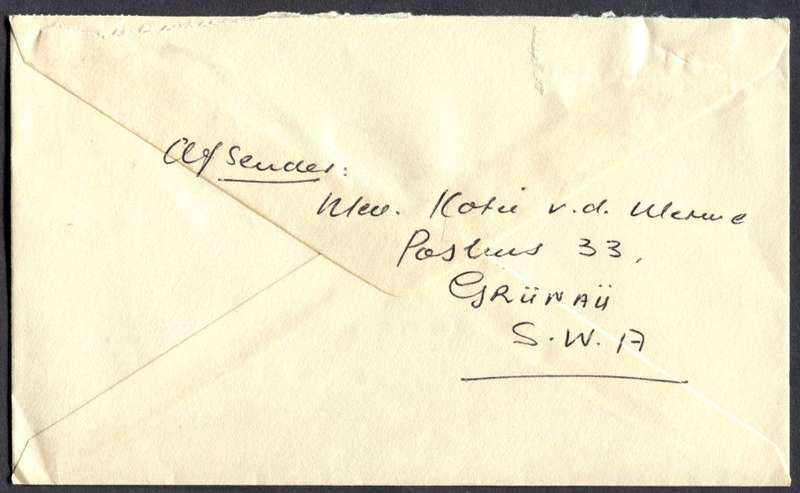 Afsender:
Mev. Kotie v.d. Merwe
Posbus 33,
GRÜNAÜ
S.W.A